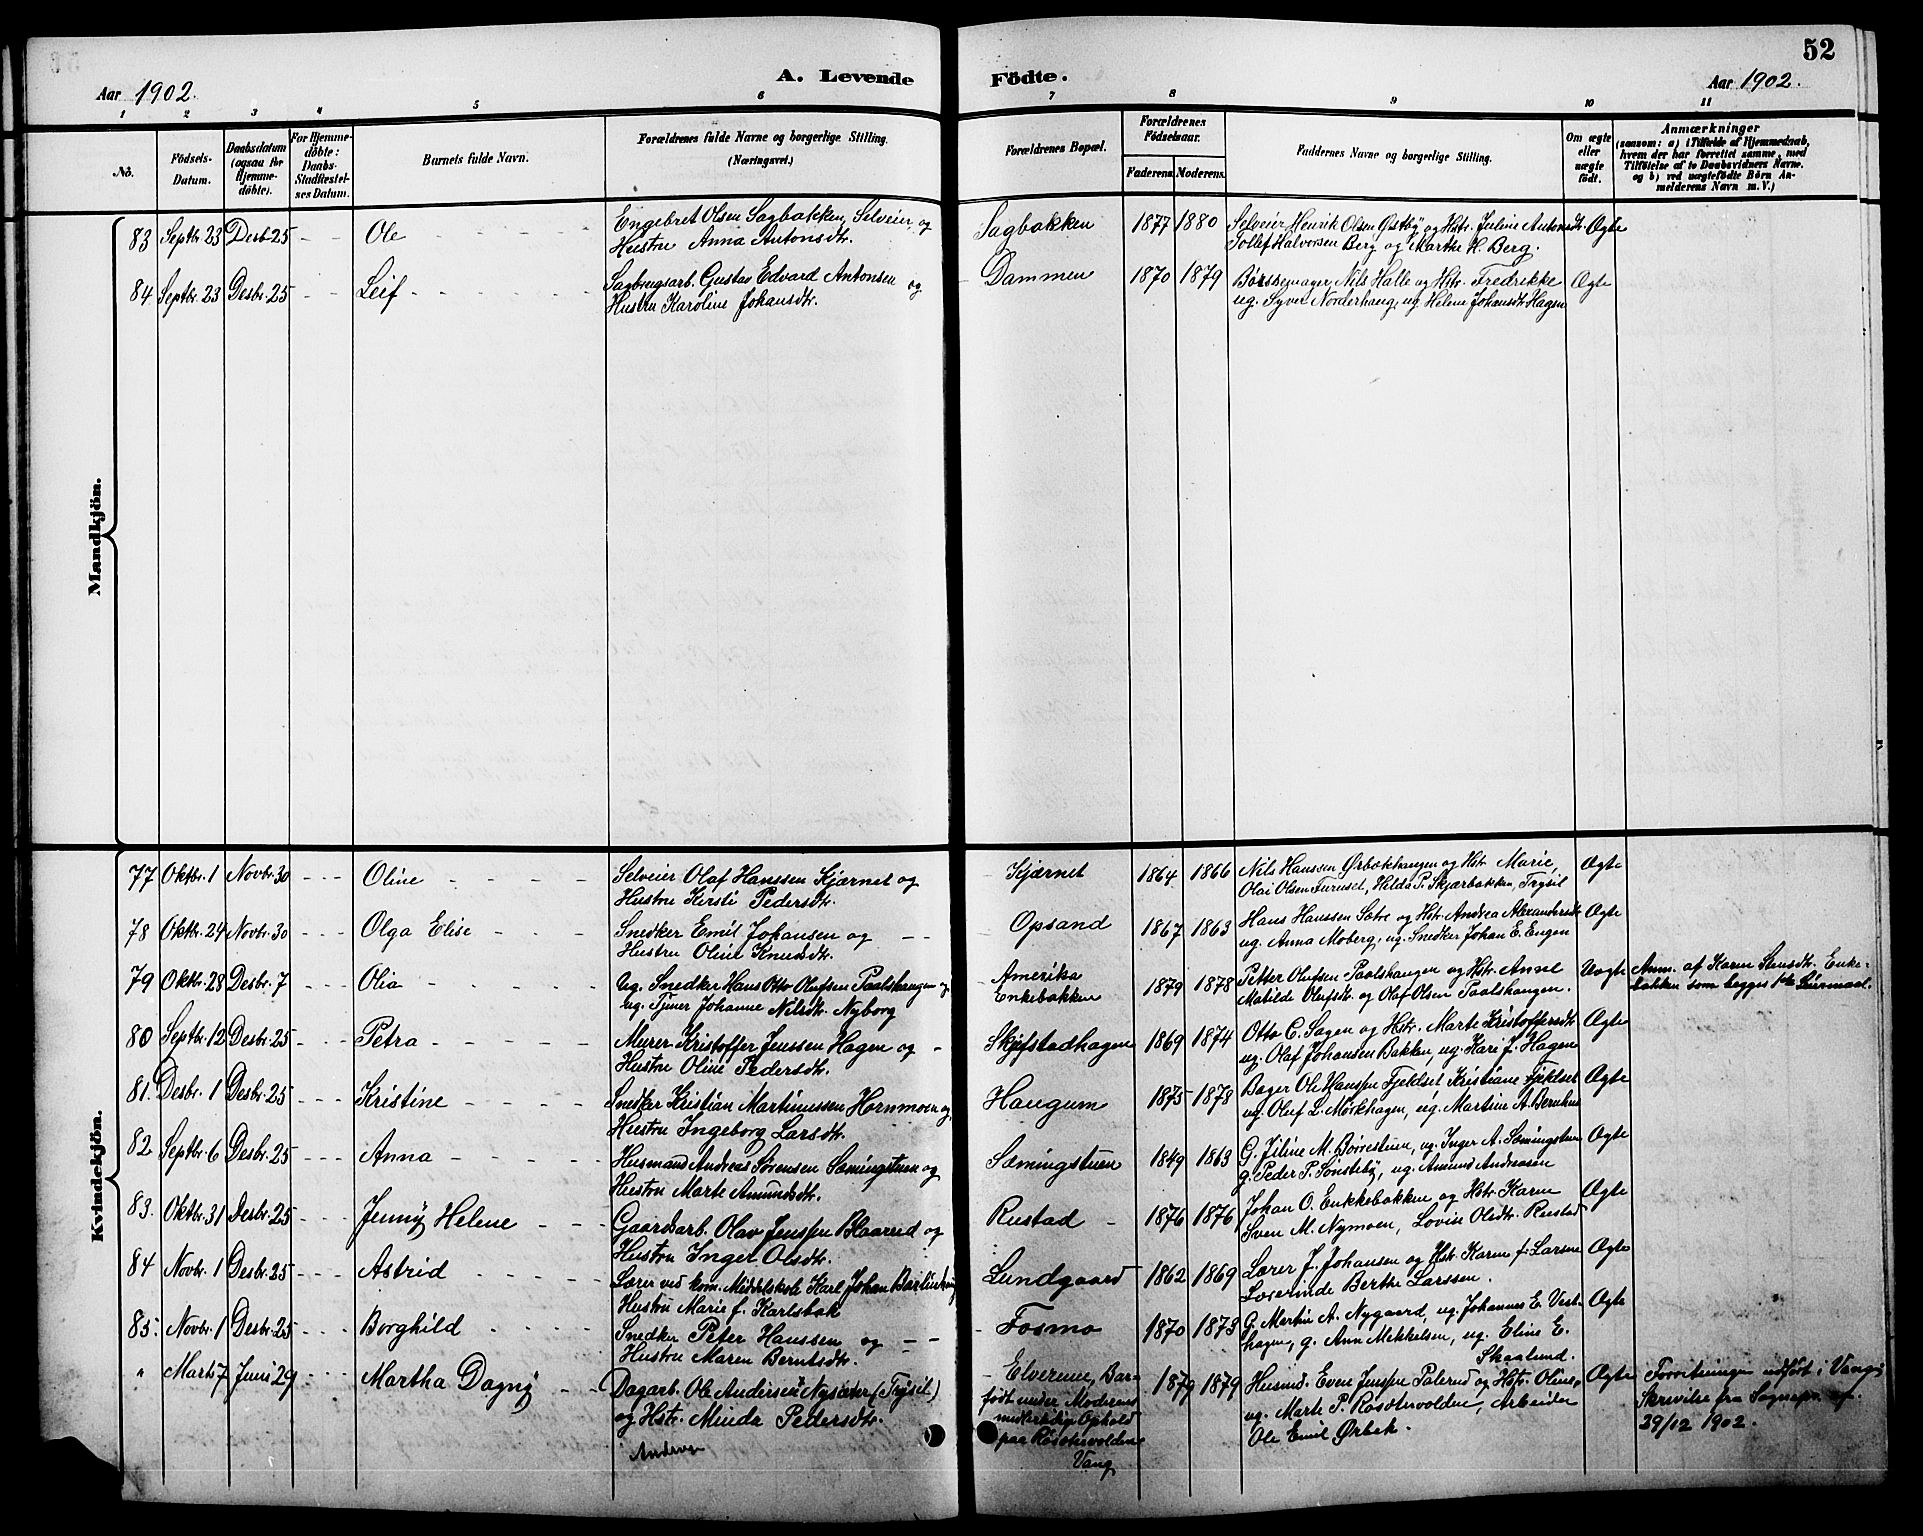 52
A. Levende Födte.
Aar 1902.
Aar 1902.
1 2 3 4 5 6 7 8 9 10 11
No.
Födsels-
Datum.
Daabsdatum
(ogsaa for
Hjemme-
döbte).
For Hjemme-
döbte:
Daabs-
Stadfæstel-
ses Datum.
Barnets fulde Navn.
Forældrenes fulde Navne og borgerlige Stilling.
(Næringsvei.)
Forældrenes Bopæl.
Forældrenes
Födselsaar.
Faderens. Moderens.
Faddernes Navne og borgerlige Stilling.
Om ægte
eller
uægte
födt.
Anmærkninger
(saasom: a) i Tilfælde af Hjemmedaab,
hvem der har forrettet samme, med
Tilföielse af to Daabsvidners Navne.
og b) ved uægtefödte Börn An-
melderens Navn m. V.)
Mandkjön.
83 Septbr. 23 Desb. 25 - - Ole Engebret Olsen Sagbakken, Selveier og Sagbakken 1877 1880 Selveier Henrik Olsen Østby og Hstr. Juline Antonsdtr. Ægte
Hustru Anna Antonsdtr. Tollef Halvorsen Berg og Marthe H. Berg.
84 Septbr. 23 Desbr. 25 - - Leif Sagbrugsarb. Gustav Edvard Antonsen og Dammen 1870 1879 Børssemager Nils Halle og Hstr. Fredrikke Ægte
Hustru Karoline Johansdtr. ug. Syver Norderhaug, ug. Helene Johansdtr. Hagen
Kvindekjön.
77 Oktbr. 1 Novbr. 30 - - - Oline Selveier Olaf Hanssen Kjærnet og Kjærnet 1864 1866 Nils Hanssen Ørbækhaugen og Hstr. Marie, Ægte
Hustru Kirsti Pedersdtr. Olai Olsen Furuset, Hilda P. Skjærbakken, Trysil
78 Oktbr. 24 Novbr. 30 - - - Olga Elise Snedker Emil Johansen og Opsand 1867 1863 Hans Hanssen Sætre og Hstr. Andrea Alexandersdtr. Ægte
Hustru Oline Knudsdtr. ug. Anna Moberg, ug. Snedker Johan E. Engen
79 Oktbr. 28 Desbr. 7 - - - Olia Ug. Snedker Hans Otto Olufsen Paalshaugen og Amerika 1879 1878 Petter Olufsen Paalshaugen og Hstr. Anne Uægte Anm. af Karen Stensdtr. Enke-
Ug. Tjener Johanne Nilsdtr. Nyborg Enkebakken Matilde Olufsdtr. og Olaf Olsen Paalshaugen. bakken som begges 1ste Leiermaal.
80 Septbr. 12 Desbr. 25 - - - Petra Murer Kristoffer Jenssen Hagen og Skjefstadhagen 1869 1874 Otto C. Sagen og Hstr. Marte Kristoffersdtr. Ægte
Hustru Oline Pedersdtr. ug. Olaf Johansen Bakken, ug. Kari J. Hagen
81. Desbr. 1 Desbr. 25 - - - Kristine Snedker Kristian Martinussen Hornmoen og Haugum 1875 1878 Bager Ole Hanssen Fjeldset, Kristiane Fjeldset Ægte
Hustru Ingeborg Larsdtr. ug. Oluf L. Mørkhagen, ug. Martine A.
82 Septbr. 6 Desbr. 25 - - - Anna Husmand Andreas Sørensen Sæmingstuen og Sæmingstuen 1849 1863 G. Jiline M. Børrestuen, ug. Inger A. Sæmingstuen Ægte
Hustru Marte Amundsdtr. g. Peder P. Sønsteby, ug. Amund Andreasen
83. Oktbr. 31 Desbr. 25 - - - Jenny Helene Gaardsarb. Olav Jenssen Blaarud og Rustad 1876 1876 Johan O. Enkkebakken og Hstr. Karen Ægte
Hustru Inger Olsdtr. Sven M. Nymoen, Lovise Olsdtr. Rustad
84 Novbr. 1 Desbr. 25 - - - Astrid Lærer ved kom. Middelskole Karl Johan Lundgaard 1862 1869 Lærer J. Johansen og Hstr. Karen f. Larsen Ægte
Hustru Marie f. Karlsbak Lærerinde Berthe Larssen.
85. Novbr. 1 Desbr. 25 - - - Borghild Snedker Peter Hanssen og Fosmo 1870 1873 G. Martin A. Nygaard, ug. Johannes E. Vest- Ægte
Hustru Maren Berntsdtr. hagen, g. Ann Mikkelsen, ug. Eline E.
Skaalund.
" Marts 7 Juni 29 Martha Dagny Dagarb. Ole Andersen Nysæter (Trysil) Elverum, Bar- 1879 1879 Husmd. Even Jenssen Palerud og Hstr. Oline, Ægte Forretningen udført i Vang
og Hstr. Minda Pedersdtr. født under Moderens ug. Marte P. Rosotuvolden, Arbeider Skrivelse fra Sognepr. af
midlertidige Ophold Ole Emil Ørbek. 29/12 1902.
paa Røsotuvolden
Vang